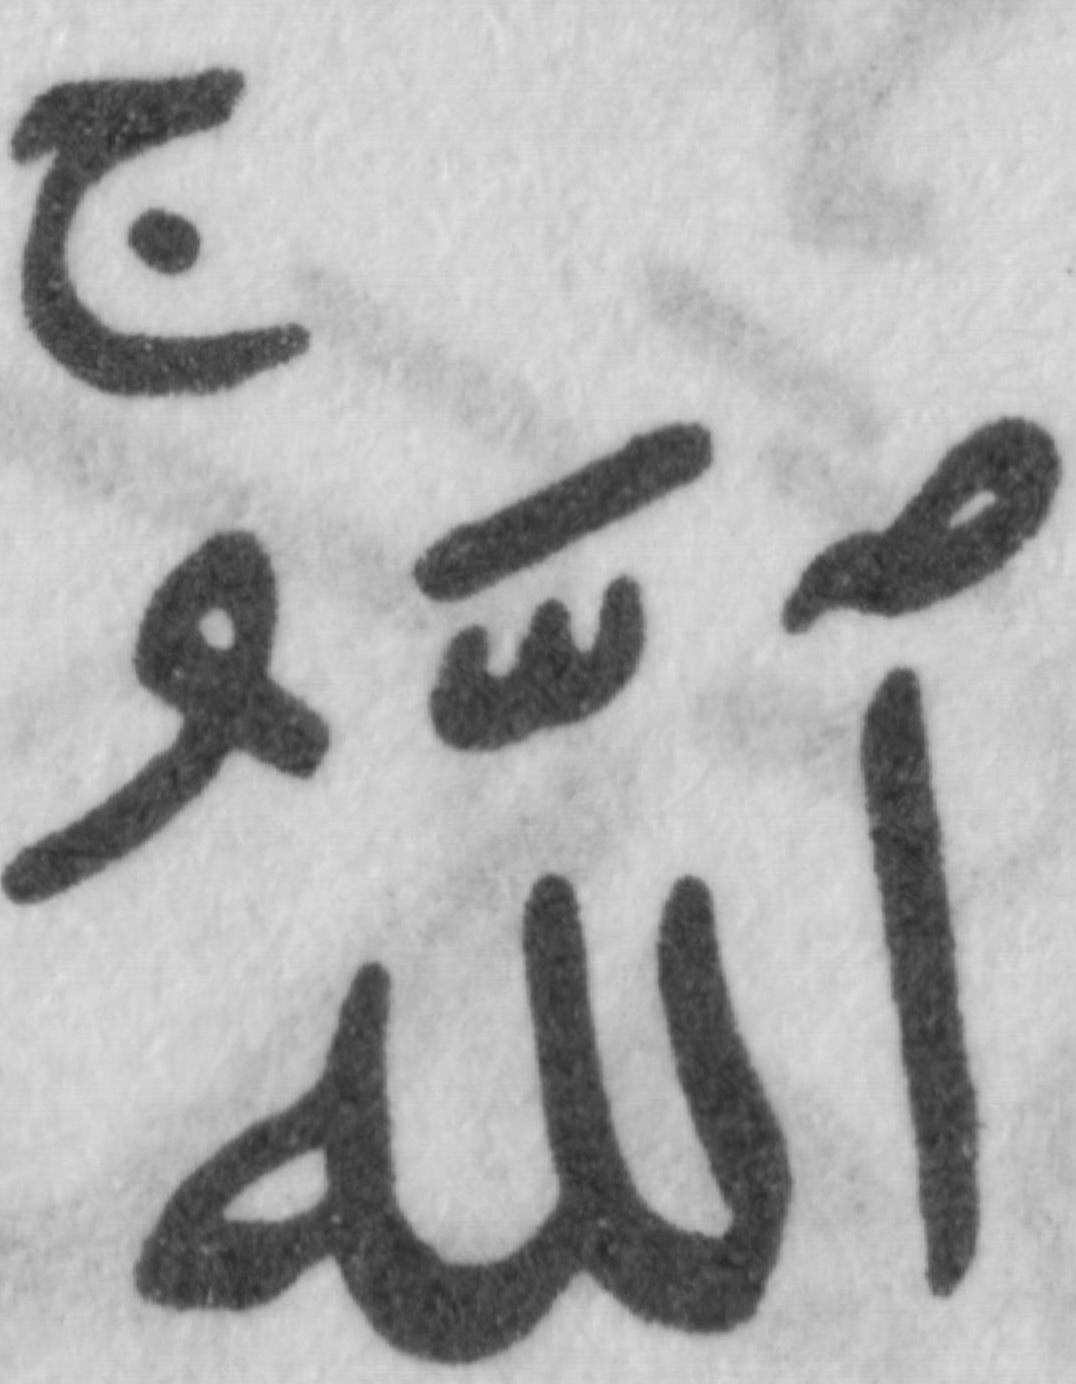 ٱللَّهُ ۚ